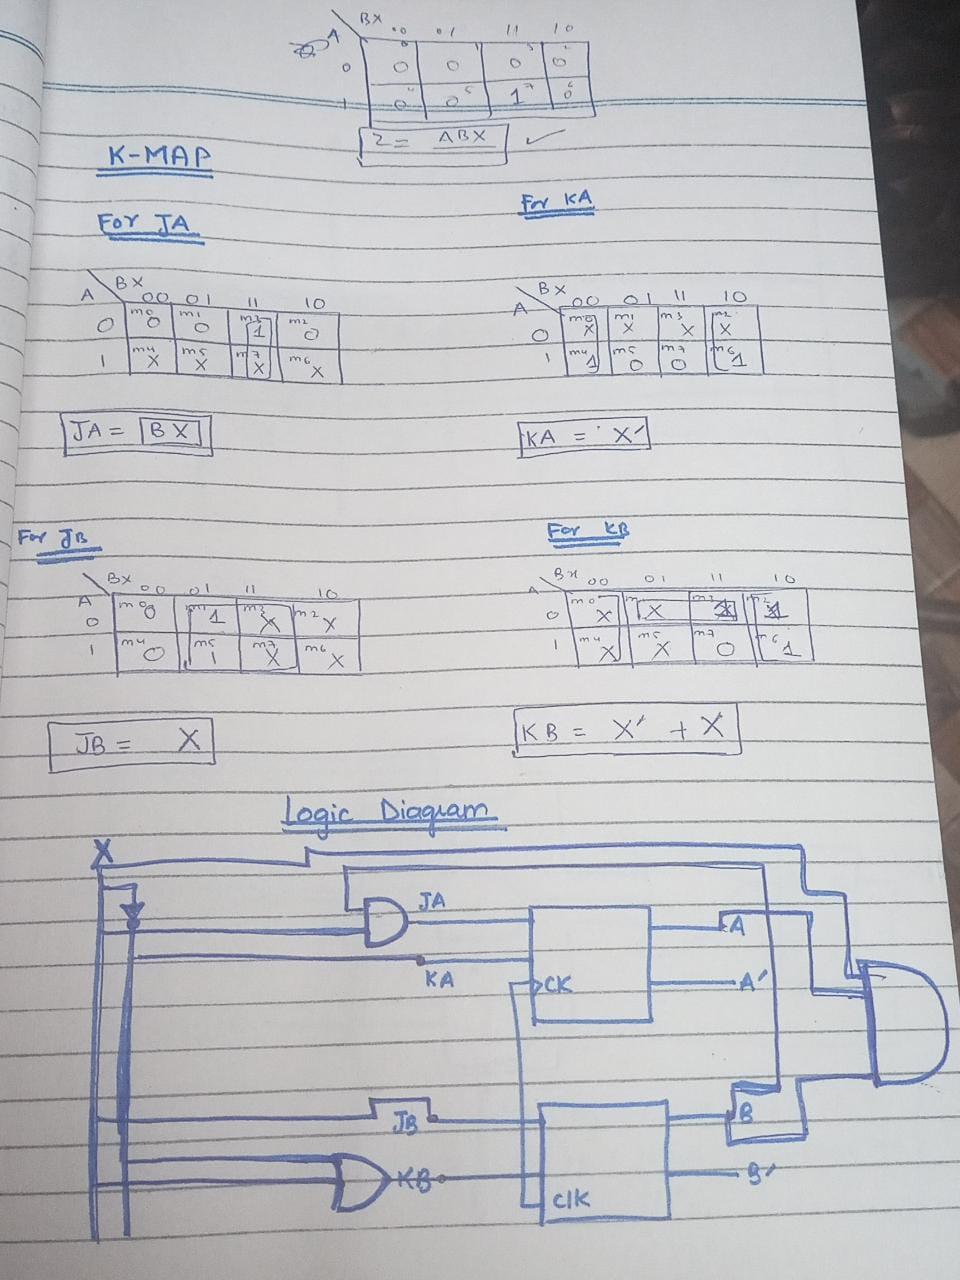 BX 00 01 11 10
A
0 0 0 0 0
1 0 0 1 0
Z = ABX
K-MAP
For JA For KA
BX BX
A 00 01 11 10 A 00 01 11 10
0 m0 0 m1 0 m3 1 m2 0 0 m0 X m1 X m3 X m2 X
1 m4 X m5 X m7 X m6 X 1 m4 1 m5 0 m7 0 m6 1
JA = BX KA = X'
For JB For KB
BX 00 01 11 10 BX 00 01 11 10
A A
0 m0 0 m1 1 m3 X m2 X 0 m0 X m1 X m3 m2
1 m4 0 m5 1 m7 X m6 X 1 m4 X m5 X m7 0 m6 1
JB = X KB = X' + X
Logic Diagram
X
JA
A
KA
CK A'
JB B
KB B'
ClK